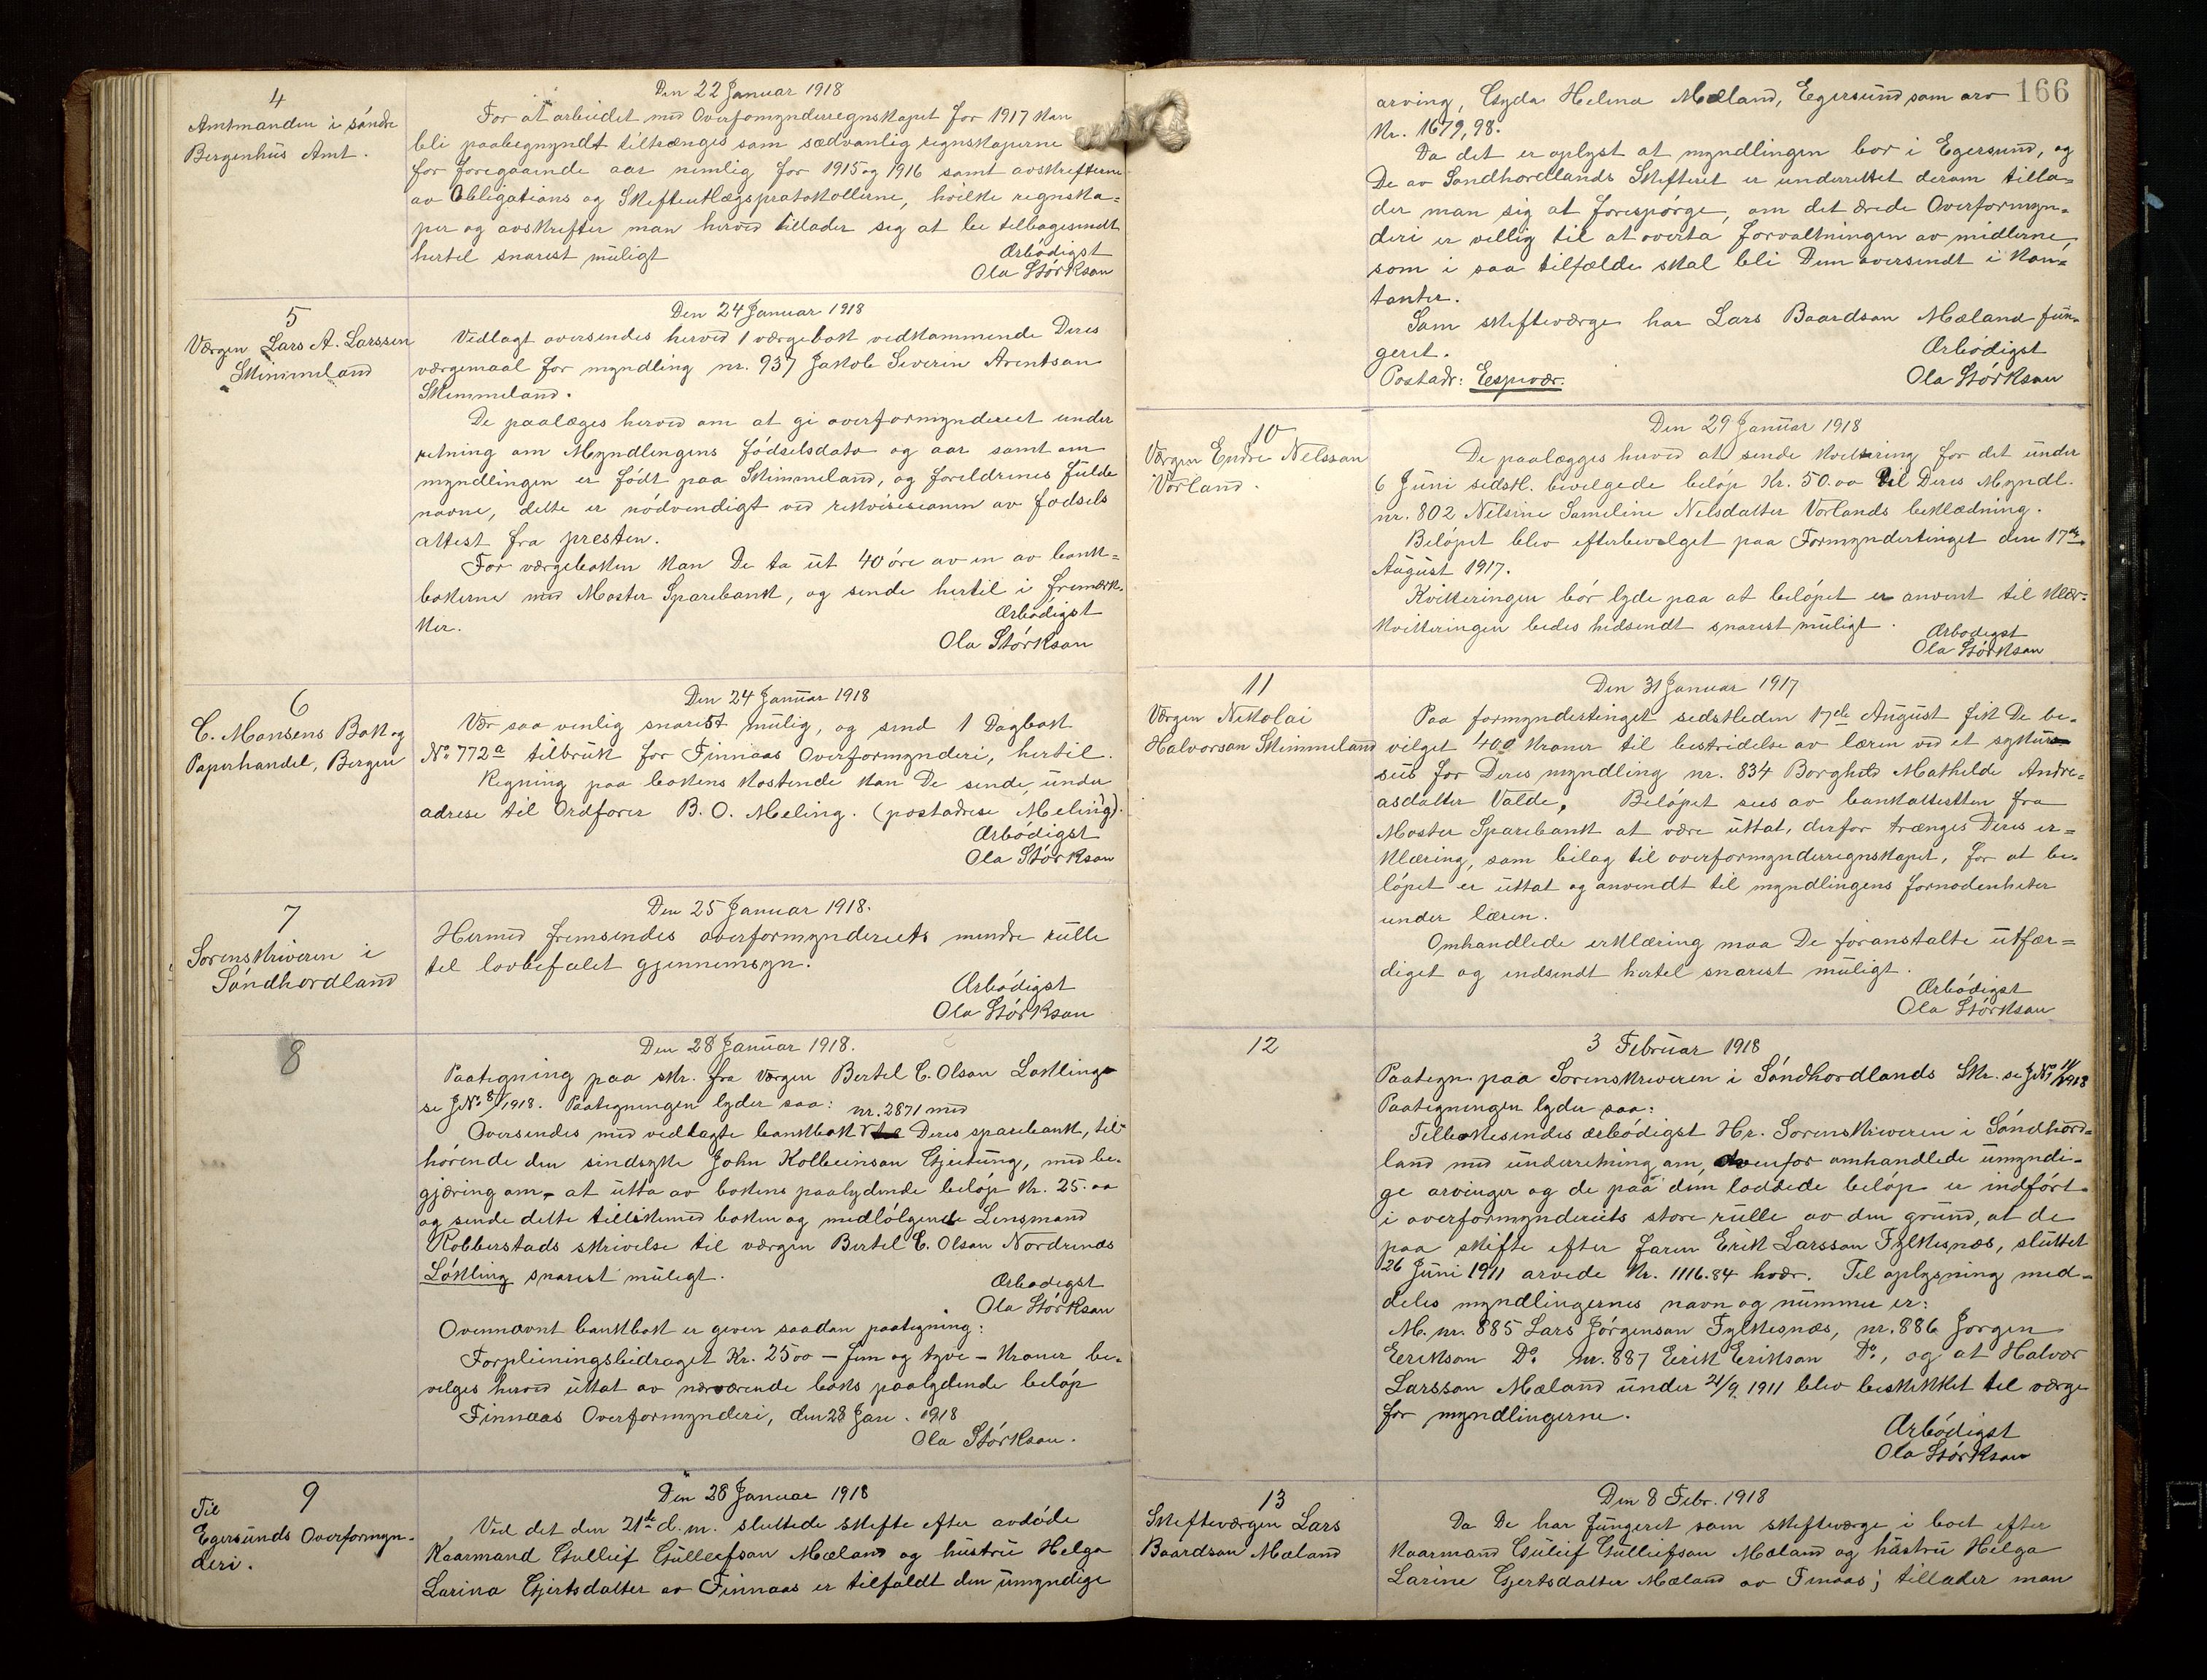 4
Amtmanden i söndre
Bergenhus Amt.
Den 22 Januar 1918
For at arbeidet med Overfomynderregnskapet for 1917 kan
bli paabegnyndt tiltrænges som sædvanlig regnskaperne
for foregaaende aar nemlig for 1915 og 1916 samt avskrifterne
av Obligations og Skifteutlægsprotokollerne, hvilke regnska=
per og avskrifter man herved tillader sig at be tilbagesendt
hertil snarest muligt
Ærbödigst
Ola Störkson
5
Værgen Lars A. Larssen
Skimmeland
Den 24 Januar 1918
Vedlagt oversendes herved 1 værgebok vedkommende Deres
værgemaal for myndling nr. 937 Jakob Severin Arentson
Skimmeland.
De paalæges herved om at gi overformynderiet under
retning om Myndlingens födselsdato og aar samt om
myndlingen er födt paa Skimmeland, og foreldrenes fulde
navne, dette er nödvendigt ved rekvisisionen av fodsels
attest fra presten.
For værgeboken kan De ta ut 40 öre av en av bank=
bokerne med Moster Sparebank, og sende hertil i frimærk.
ker.
Ærbödigst
Ola Störkson
6
C. Monsens Bok og
Papirhandel, Bergen
Den 24 Januar 1918
Vær saa venlig snarest mulig, og send 1 Dagbok
No 772a tilbruk for Finnaas Overformynderi, hertil.
Regning paa bokens kostende kan De sende, under
adrese til Ordforer B. O. Meling. (postadrese Meling).
Ærbödigst
Ola Störkson
7
Sorenskriveren i
Söndhordland
Den 25 Januar 1918.
Hermed fremsendes overformynderiets mindre rulle
til lovbefalet gjennemsyn.
Ærbödigst
Ola Störkson
8
Den 28 Januar 1918.
Paategning paa skr. fra værgen Bertel C. Olson Lokling
se J.No 8/1918. Paategningen lyder saa:
nr. 2871 med
Oversendes med vedlagte bankbok Deres sparebank, til=
hörende den sindsyke John Kolbeinson Gjeitung, med be=
gjæring om at utta av bokens paalydende belöp Kr. 25.00
og sende dette tillikemed boken og medfölgende Lensmand
Robberstads skrivelse til værgen Bertel C. Olson Nordrenæs
Lökling snarest muligt.
Ærbodigst
Ola Störkson
Ovennævnt bankbok er given saadan paategning:
Forpleiningsbidraget Kr. 2500 – fem og tyve – Kroner be=
vilges herved uttat av nærværende boks paalydende belöp
Finnaas Overformynderi, den 28 Jan. 1918
Ola Störkson.
9
Til
Egersunds Overformyn=
deri.
Den 28 Januar 1918
Ved det den 21de d. m. sluttede skifte efter avdöde
Kaarmand Gulleif Gulleifson Mæland og hustru Helga
Larina Gjertsdatter av Finnaas er tilfaldt den umyndige
166
arving, Gyda Helena Mæland, Egersund som arv
Kr. 1679,98.
Da det er oplyst at myndlingen bor i Egersund, og
De av Sondhordlands Skifteret er underrettet derom tilla=
der man sig at forespörge, om det ærede Overformyn=
deri er villig til at overta forvaltningen av midlerne,
som i saa tilfælde skal bli Dem oversendt i kon=
tanter.
Som skifteværge har Lars Baardson Mæland fun=
geret.
Ærbödigst
Postadr: Espevær.
Ola Störkson
10
Værgen Endre Nelsson
Vorland.
Den 29 Januar 1918
De paalægges herved at sende kvittering for det under
6 Juni sidstl. bevilgede belöp Kr. 50.00 til Deres Myndl.
nr. 802 Nelsine Sameline Nelsdatter Vorlands beklædning.
Belöpet blev efterbevilget paa Formyndertinget den 17de
August 1917.
Kvitteringen bör lyde paa at belöpet er anvent til klær.
Kvitteringen bedes hidsendt snarest muligt.
Ærbodigst
Ola Störkson
11
Værgen Nikolai
Halvorson Skimmeland
Den 31 Januar 1917
Paa formyndertinget sidstleden 17de August fik De be=
vilget 400 kroner til bestridelse av læren ved et sykurs
sus for Deres myndling nr. 834 Borghild Mathilde Andre=
asdatter Valde. Belöpet sees av bankattesten fra
Moster Sparebank at være uttat, derfor trænges Deres er=
klæring, som bilag til overformynderregnskapet, for at be=
löpet er uttat og anvendt til myndlingens fornodenheter
under læren.
Omhandlede erklæring maa De foranstalte utfær=
diget og indsendt hertil snarest muligt.
Ærbödigst
Ola Störkson
12
3 Februar 1918
Paategn. paa Sorenskriveren i Söndhordlands Skr. se J.No 11/1918
Paategningen lyder saa:
Tilbakesendes ærbödigst Hr. Sorenskriveren i Söndhord=
land med underretning om, ovenfor omhandlede umyndi=
ge arvinger og de paa dem loddede belöp er indfört
i overformynderiets store rulle av den grund, at de
paa skifte efter faren Erik Larsson Fylkesnæs, sluttet
26 Juni 1911 arvede Kr. 1116.84 hvær. Til oplysning med=
deles myndlingernes navn og nummer er:
M. nr. 885 Lars Jörgenson Fylkesnæs, nr. 886 Jorgen
Eerikson Do. nr. 887 Eerik Erikson Do., og at Halvor
Larsson Mæland under 21/9 1911 blev beskikket til værge
for myndlingerne.
Ærbödigst
Ola Störkson
13
Skifteværgen Lars
Baardson Mæland
Den 8 Febr. 1918
Da De har fungeret som skifteværge i boet efter
Kaarmand Guleif Gulleifson Mæland og hustru Helga
Larine Gjertsdatter Mæland av Finaas; tillader man